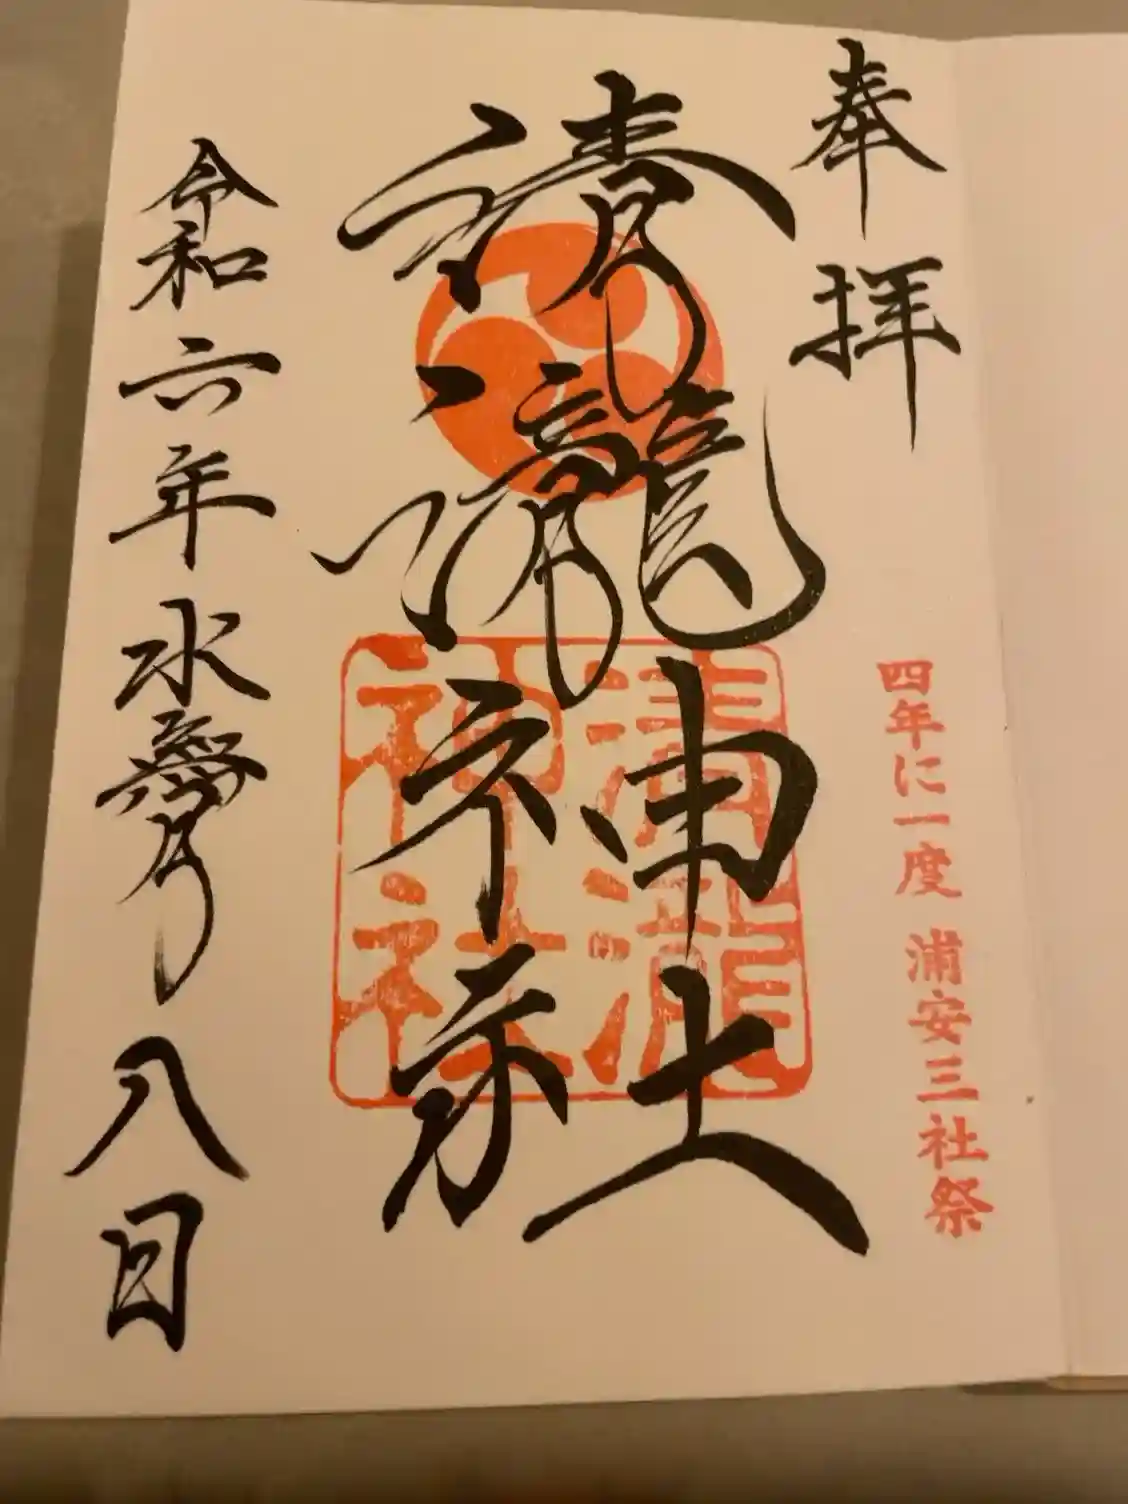 奉拝
四年に一度 浦安三社祭
清瀧神社
清瀧
神社
令和六年水無月八日